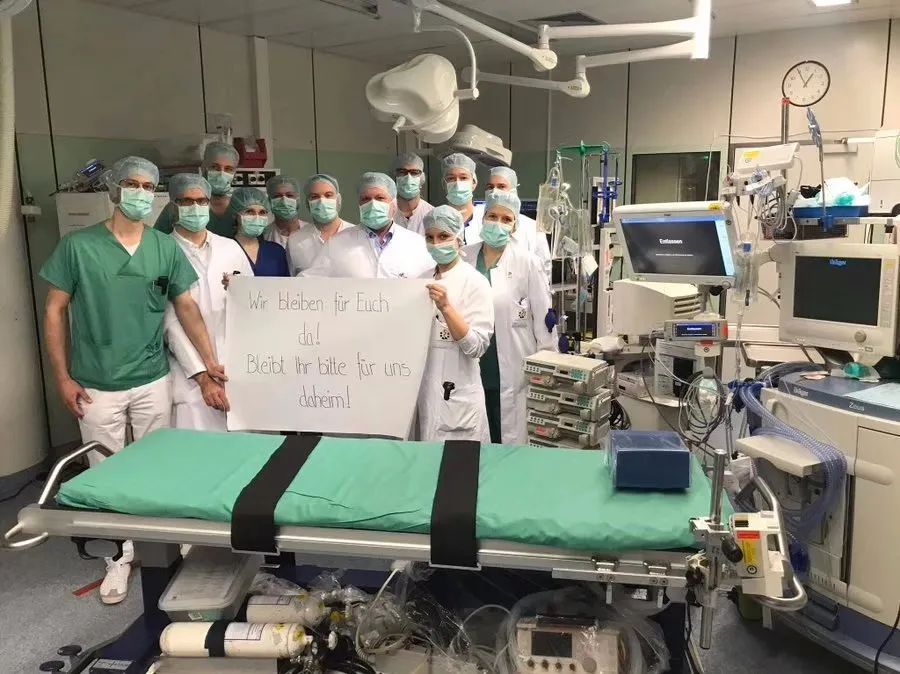 Wir bleiben für Euch
da!
Bleibt Ihr bitte für uns
daheim!
Entlassen
Dräger
Zeus